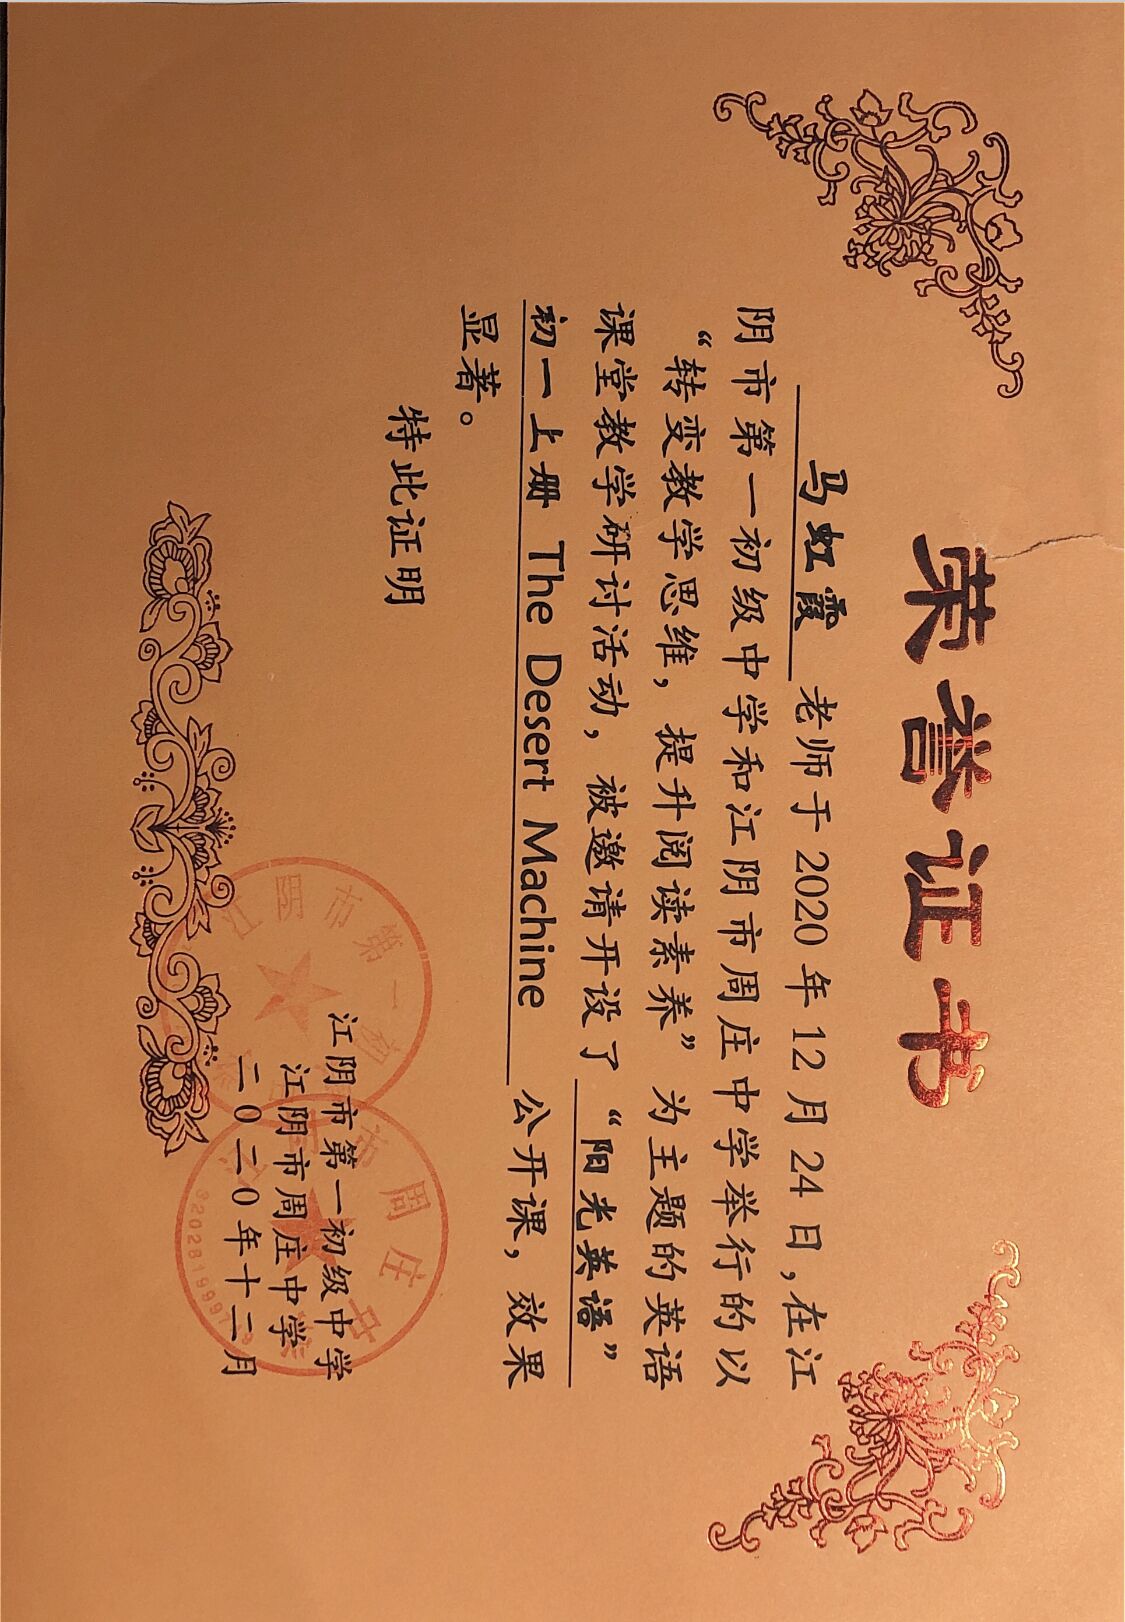 荣誉证书
马虹霞 老师于 2020 年 12 月 24 日,在江
阴市第一初级中学和江阴市周庄中学举行的以
“转变教学思维，提升阅读素养”为主题的英语
课堂教学研讨活动，被邀请开设了 “阳光英语”
初一上册 The Desert Machine 公开课，效果
显著。
特此证明
江阴市第一初级中学
江阴市周庄中学
二０二０年十二月